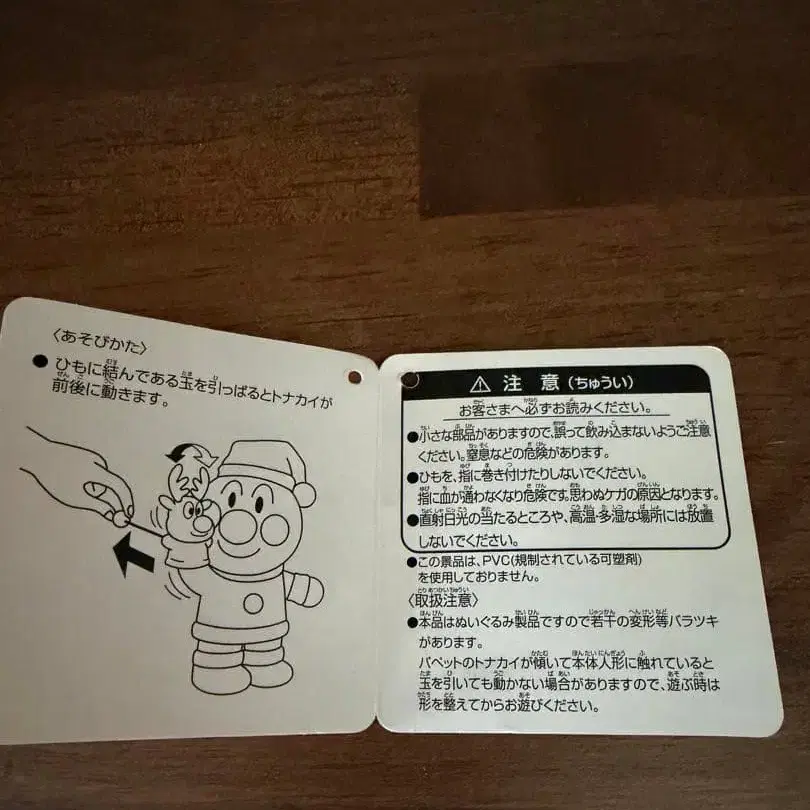 〈あそびかた〉
●ひもに結んである玉を引っぱるとトナカイが
前後に動きます。
⚠ 注意(ちゅうい)
お客さまへ必ずお読みください。
●小さな部品がありますので、誤って飲み込まないようご注意
ください。窒息などの危険があります。
●ひもを、指に巻き付けたりしないでください。
指に血が通わなくなり危険です。思わぬケガの原因となります。
●直射日光の当たるところや、高温・多湿な場所には放置
しないでください。
●この景品は、PVC(規制されている可塑剤)
を使用しておりません。
〈取扱注意〉
●本品はぬいぐるみ製品ですので若干の変形等バラツキ
があります。
パペットのトナカイが傾いて本体人形に触れていると
玉を引いても動かない場合がありますので、遊ぶ時は
形を整えてからお遊びください。